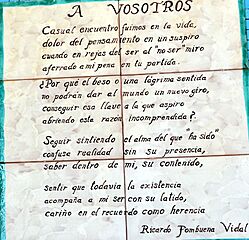 A VOSOTROS
Casual encuentro fuimos en la vida,
dolor del pensamiento en un suspiro
cuando en rejas del ser al "no ser" miro
aferrado a mi pena en tu partida.
¿Por qué el beso o una lágrima sentida
no podrán dar al mundo un nuevo giro,
conseguir esa llave a la que aspiro
abriendo esta razón incomprendida?.
Seguir sintiendo el alma del que "ha sido"
confusa realidad sin su presencia,
saber dentro de mi, su contenido,
sentir que todavia la existencia
acompaña a mi ser con su latido,
cariño en el recuerdo como herencia
Ricardo Pombuena Vidal